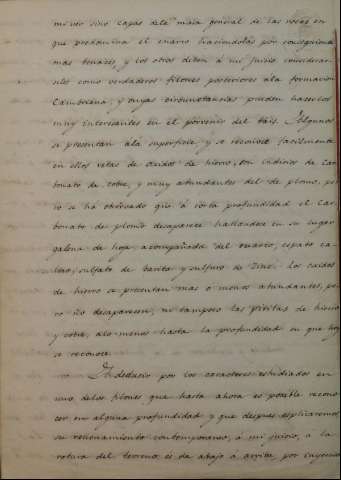 mi ver sino capas de la masa general de las rocas en
que predomina el cuarzo haciendolas por consiguiente
mas tenaces y los otros deben á mi juicio considerar-
seles como verdaderos filones posteriores á la formacion
Cambriana, y cuyas circunstancias pueden hacerlos
muy interesantes en el porvenir del pais. Algunos
se presentan á la superficie, y se reconoce facilmente
en ellos vetas de óxidos de hierro, con indicios de Car-
bonato de cobre, y muy abundantes del de plomo, pe-
ro se ha observado que á corta profundidad el Car-
bonato de plomo desaparece hallandose en su lugar
galena de hoja acompañada del cuarzo, espato ca-
lizo, sulfato de barita y sulfuro de Zinc. Los óxidos
de hierro se presentan mas ó menos abundantes, pe-
ro no desaparecen, ni tampoco las piritas de hierro
y cobre, alo menos hasta la profundidad en que hoy
se reconoce.
Deducido por los caracteres estudiados en
uno de los filones que hasta ahora es posible recono-
cer en alguna profundidad y que despues esplicaremos,
su rellenamiento contemporaneo, á mi juicio, á la
rotura del terreno, es de abajo á arriba, por inyeccion